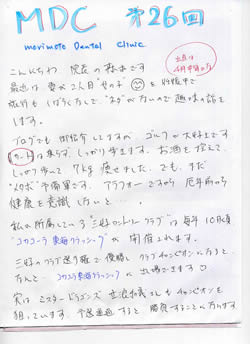 MDC 第26回
morimoto Dental Clinic
こんにちわ 院長の森本です
最近は 妻が2人目"女の子"を妊娠中で
出産は
4月中旬の予定
旅行もしばらく行って、"ネタ"がないので 趣味の話を
します。
ブログでも 御紹介してますが、ゴルフが大好きです
カートは乗らず、しっかり歩きます。お酒を控えて
しっかり歩って 7kg 痩せました。でも、まだ
"メタボ"予備軍です。アラフォーですから 厄年前から
健康を意識しないと…
私の所属している"三好カントリークラブ"は毎年10月頃
"コカコーラ東海クラシック"が 開催されます。
三好のクラブ選手権で優勝し クラブチャンピオンになると
なんと、コカコーラ東海クラシックに出場できます
実は ミスタードラゴンズ 立浪和義さんもチャンピオンを
狙っています。予選通過すると 勝負することになります